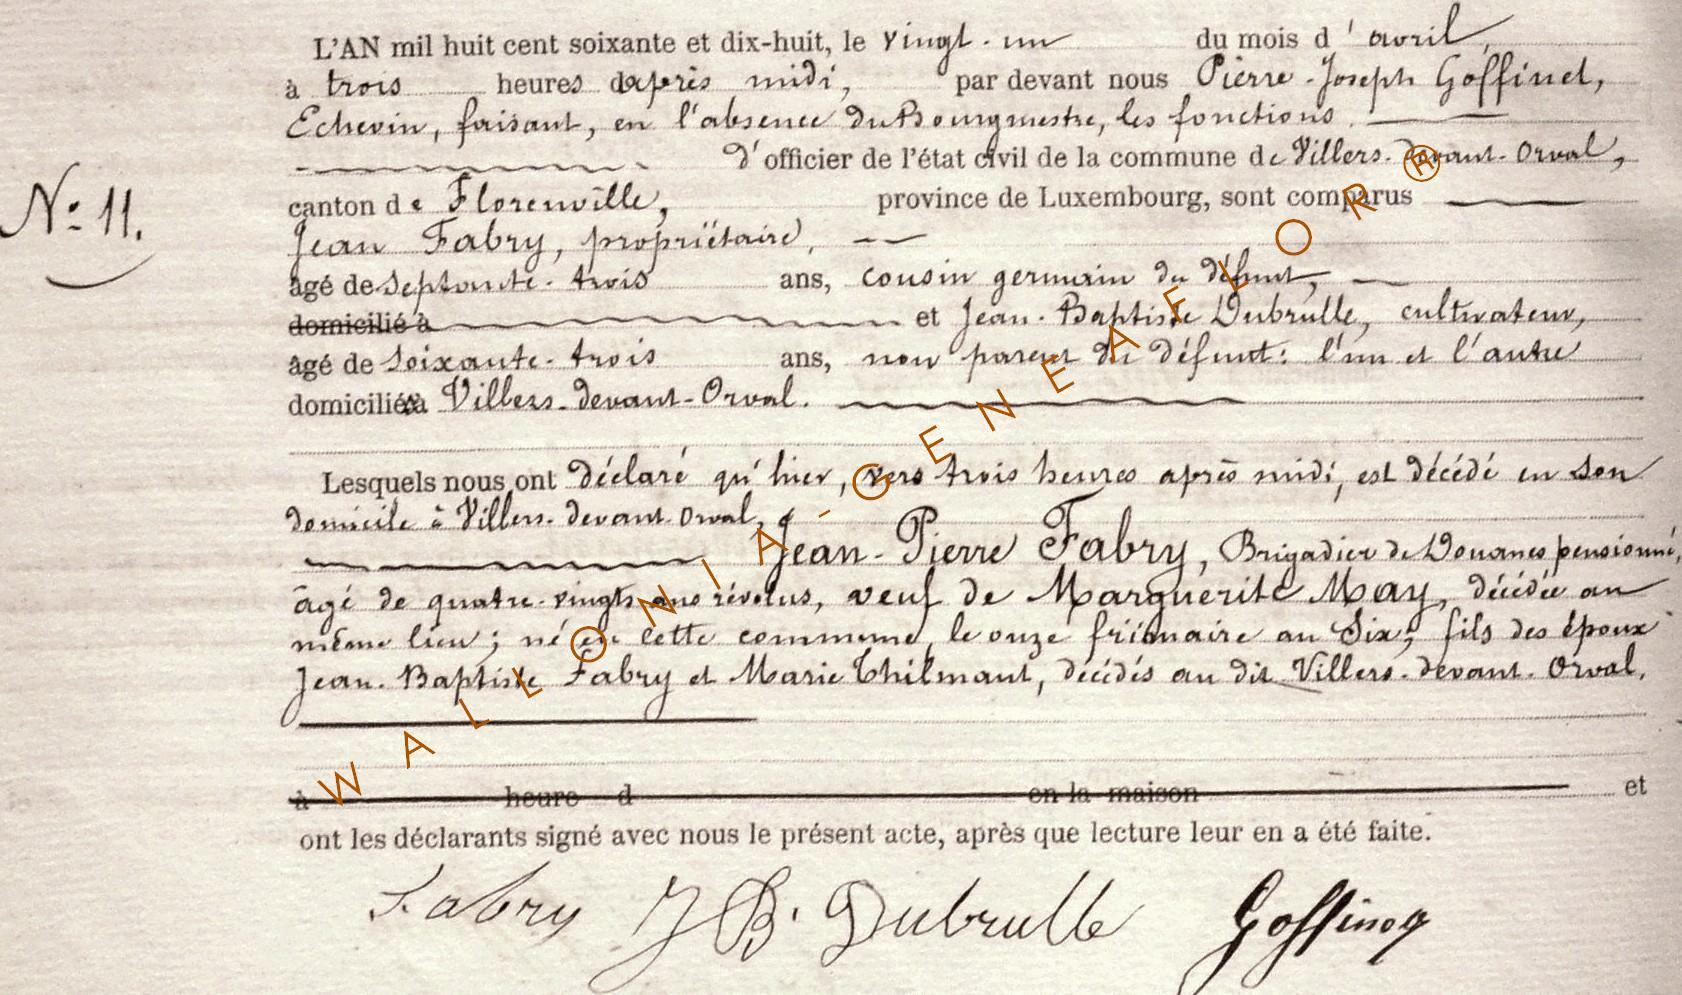 L'AN mil huit cent soixante et dix-huit, le vingt-un du mois d'avril,
à trois heures d'après midi, par devant nous Pierre-Joseph Goffinet,
Echevin, faisant, en l'absence du Bourgmestre, les fonctions
d'officier de l'état civil de la commune de Villers-devant-Orval,
N° 11.
canton de Florenville, province de Luxembourg, sont comparus
Jean Fabry, propriétaire,
âgé de septante-trois ans, cousin germain du défunt,
domicilié à et Jean-Baptiste Dubrulle, cultivateur,
âgé de soixante-trois ans, non parent du défunt: l'un et l'autre
domiciliés à Villers-devant-Orval.
Lesquels nous ont déclaré qu'hier, vers trois heures après midi, est décédé en son
domicile à Villers-devant-Orval,
Jean-Pierre Fabry, Brigadier de Douanes pensionné,
âgé de quatre-vingts ans révolus, veuf de Marguerite May, décédée au
même lieu; né en cette commune, le onze frimaire an Six; fils des époux
Jean-Baptiste Fabry et Marie Thilmant, décédés au dit Villers-devant-Orval.
à heure d en la maison et
ont les déclarants signé avec nous le présent acte, après que lecture leur en a été faite.
Fabry J B. Dubrulle Goffinet
WALLONIA-GENEAFLOR®